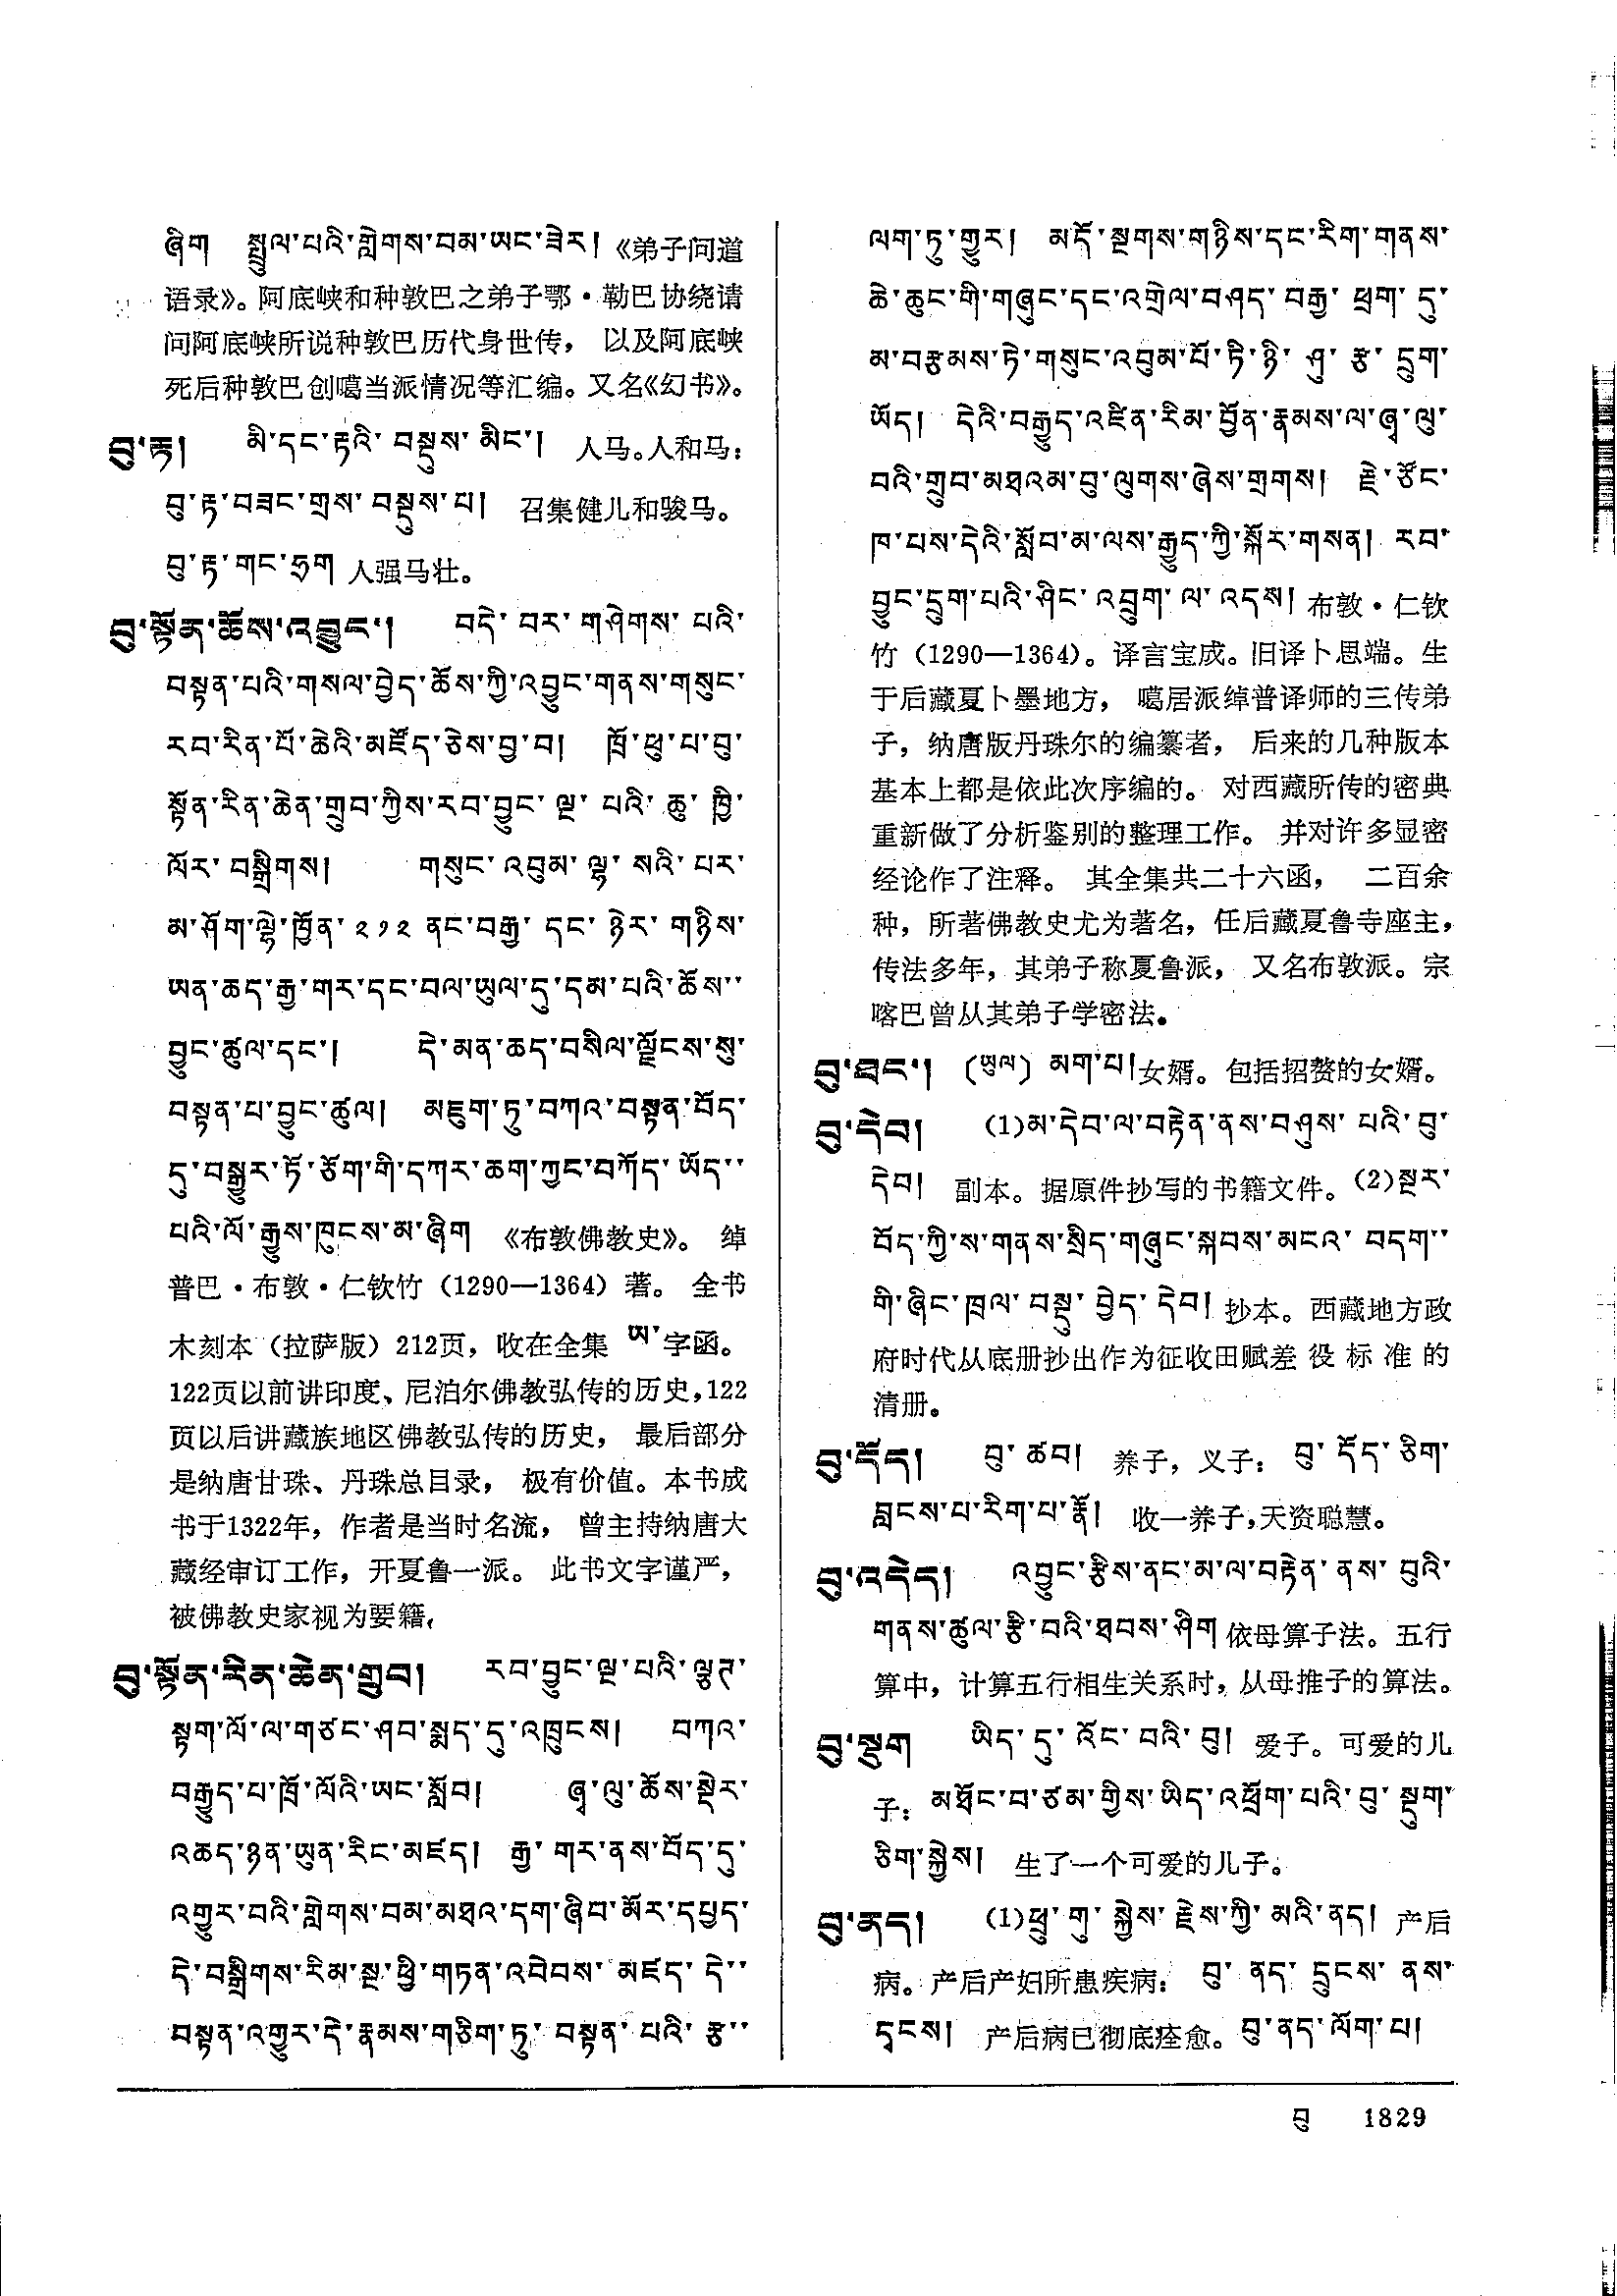 ཞིག སྤྲུལ་པའི་གླེགས་བམ་ཡང་ཟེར། 《弟子问道
语录》。阿底峡和种敦巴之弟子鄂·勒巴协绕请
问阿底峡所说种敦巴历代身世传， 以及阿底峡
死后种敦巴创噶当派情况等汇编。又名《幻书》。
བུ་རྟ། མི་དང་རྟའི་ བསྡུས་ མིང་། 人马。人和马：
བུ་རྟ་བཟང་གྲས་ བསྡུས་པ། 召集健儿和骏马。
བུ་རྟ་གང་དྲག 人强马壮。
བུ་སྟོན་ཆོས་འབྱུང་། བདེ་ བར་ གཤེགས་ པའི་
བསྟན་པའི་གསལ་བྱེད་ཆོས་ཀྱི་འབྱུང་གནས་གསུང་
རབ་རིན་པོ་ཆེའི་མཛོད་ཅེས་བྱ་བ། ཁྲོ་ཕུ་པ་བུ་
སྟོན་རིན་ཆེན་གྲུབ་ཀྱིས་རབ་བྱུང་ ལྔ་ པའི་ ཆུ་ ཁྱི་
ལོར་ བསྒྲིགས། གསུང་ འབུམ་ ལྷ་ སའི་ པར་
མ་ཤོག་ལྷེ་ཁྱོན་ ༢༡༢ ནང་བརྒྱ་ དང་ ཉེར་ གཉིས་
ཡན་ཆད་རྒྱ་གར་དང་བལ་ཡུལ་དུ་དམ་པའི་ཆོས་་
བྱུང་ཚུལ་དང་། དེ་མན་ཆད་བསིལ་ལྗོངས་སུ་
བསྟན་པ་བྱུང་ཚུལ། མཇུག་ཏུ་བཀའ་བསྟན་བོད་
དུ་བསྒྱུར་ཏོ་ཅོག་གི་དཀར་ཆག་ཀྱང་བཀོད་ ཡོད་་
པའི་ལོ་རྒྱུས་ཁུངས་མ་ཞིག 《布敦佛教史》。 绰
普巴·布敦·仁钦竹（1290—1364）著。 全书
木刻本（拉萨版）212页，收在全集 ཡ་ 字函。
122页以前讲印度、尼泊尔佛教弘传的历史，122
页以后讲藏族地区佛教弘传的历史， 最后部分
是纳唐甘珠、丹珠总目录， 极有价值。本书成
书于1322年，作者是当时名流， 曾主持纳唐大
藏经审订工作，开夏鲁一派。 此书文字谨严，
被佛教史家视为要籍，
བུ་སྟོན་རིན་ཆེན་གྲུབ། རབ་བྱུང་ལྔ་པའི་ལྕགས་
སྟག་ལོ་ལ་གཙང་ཤབ་སྨད་དུ་འཁྲུངས། བཀའ་
བརྒྱུད་པ་ཁྲོ་ལོའི་ཡང་སློབ། ཞྭ་ལུ་ཆོས་སྡེར་
འཆད་ཉན་ཡུན་རིང་མཛད། རྒྱ་ གར་ནས་བོད་དུ་
འགྱུར་བའི་གླེགས་བམ་མཐའ་དག་ཞིབ་མོར་དཔྱད་
དེ་བསྒྲིགས་རིམ་སྔ་ཕྱི་གཏན་འབེབས་ མཛད་ དེ་་
བསྟན་འགྱུར་དེ་རྣམས་གཅིག་ཏུ་ བསྟན་ པའི་ རྩ་་
ལག་ཏུ་གྱུར། མདོ་སྔགས་གཉིས་དང་རིག་གནས་
ཆེ་ཆུང་གི་གཞུང་དང་འགྲེལ་བཤད་ བརྒྱ་ ཕྲག་ དུ་
མ་བརྩམས་ཏེ་གསུང་འབུམ་པོ་ཏི་ཉི་ ཤུ་ རྩ་ དྲུག་
ཡོད། དེའི་བརྒྱུད་འཛིན་རིམ་བྱོན་རྣམས་ལ་ཞྭ་ལུ་
བའི་གྲུབ་མཐའམ་བུ་ལུགས་ཞེས་གྲགས། རྗེ་ཙོང་
ཁ་པས་དེའི་སློབ་མ་ལས་རྒྱུད་ཀྱི་སྐོར་གསན། རབ་
བྱུང་དྲུག་པའི་ཤིང་ འབྲུག་ ལ་ འདས། 布敦·仁钦
竹（1290—1364）。译言宝成。旧译卜思端。生
于后藏夏卜墨地方， 噶居派绰普译师的三传弟
子，纳唐版丹珠尔的编纂者， 后来的几种版本
基本上都是依此次序编的。 对西藏所传的密典
重新做了分析鉴别的整理工作。 并对许多显密
经论作了注释。 其全集共二十六函， 二百余
种，所著佛教史尤为著名，任后藏夏鲁寺座主，
传法多年，其弟子称夏鲁派， 又名布敦派。宗
喀巴曾从其弟子学密法。
བུ་ཐང་། (ཡུལ) མག་པ། 女婿。包括招赘的女婿。
བུ་དེབ། (1)མ་དེབ་ལ་བརྟེན་ནས་བཤུས་ པའི་བུ་
དེབ། 副本。据原件抄写的书籍文件。(2)སྔར་
བོད་ཀྱི་ས་གནས་སྲིད་གཞུང་སྐབས་མངའ་ བདག་་
གི་ཞིང་ཁྲལ་ བསྡུ་ བྱེད་ དེབ། 抄本。西藏地方政
府时代从底册抄出作为征收田赋差 役 标 准 的
清册。
བུ་དོད། བུ་ ཚབ། 养子，义子： བུ་ དོད་ ཅིག་
བླངས་པ་རིག་པ་རྣོ། 收一养子，天资聪慧。
བུ་འདེད། འབྱུང་རྩིས་ནང་མ་ལ་བརྟེན་ ནས་ བུའི་
གནས་ཚུལ་རྩི་བའི་ཐབས་ཤིག 依母算子法。五行
算中，计算五行相生关系时，从母推子的算法。
བུ་སྡུག ཡིད་ དུ་ འོང་ བའི་ བུ། 爱子。可爱的儿
子：མཐོང་བ་ཙམ་གྱིས་ཡིད་འཕྲོག་པའི་བུ་ སྡུག་
ཅིག་སྐྱེས། 生了一个可爱的儿子。
བུ་ནད། (1)ཕྲུ་ གུ་ སྐྱེས་ རྗེས་ཀྱི་ མའི་ནད། 产后
病。产后产妇所患疾病： བུ་ ནད་ དྲུངས་ ནས་
དྭངས། 产后病已彻底痊愈。བུ་ནད་ལོག་པ།
བུ 1829